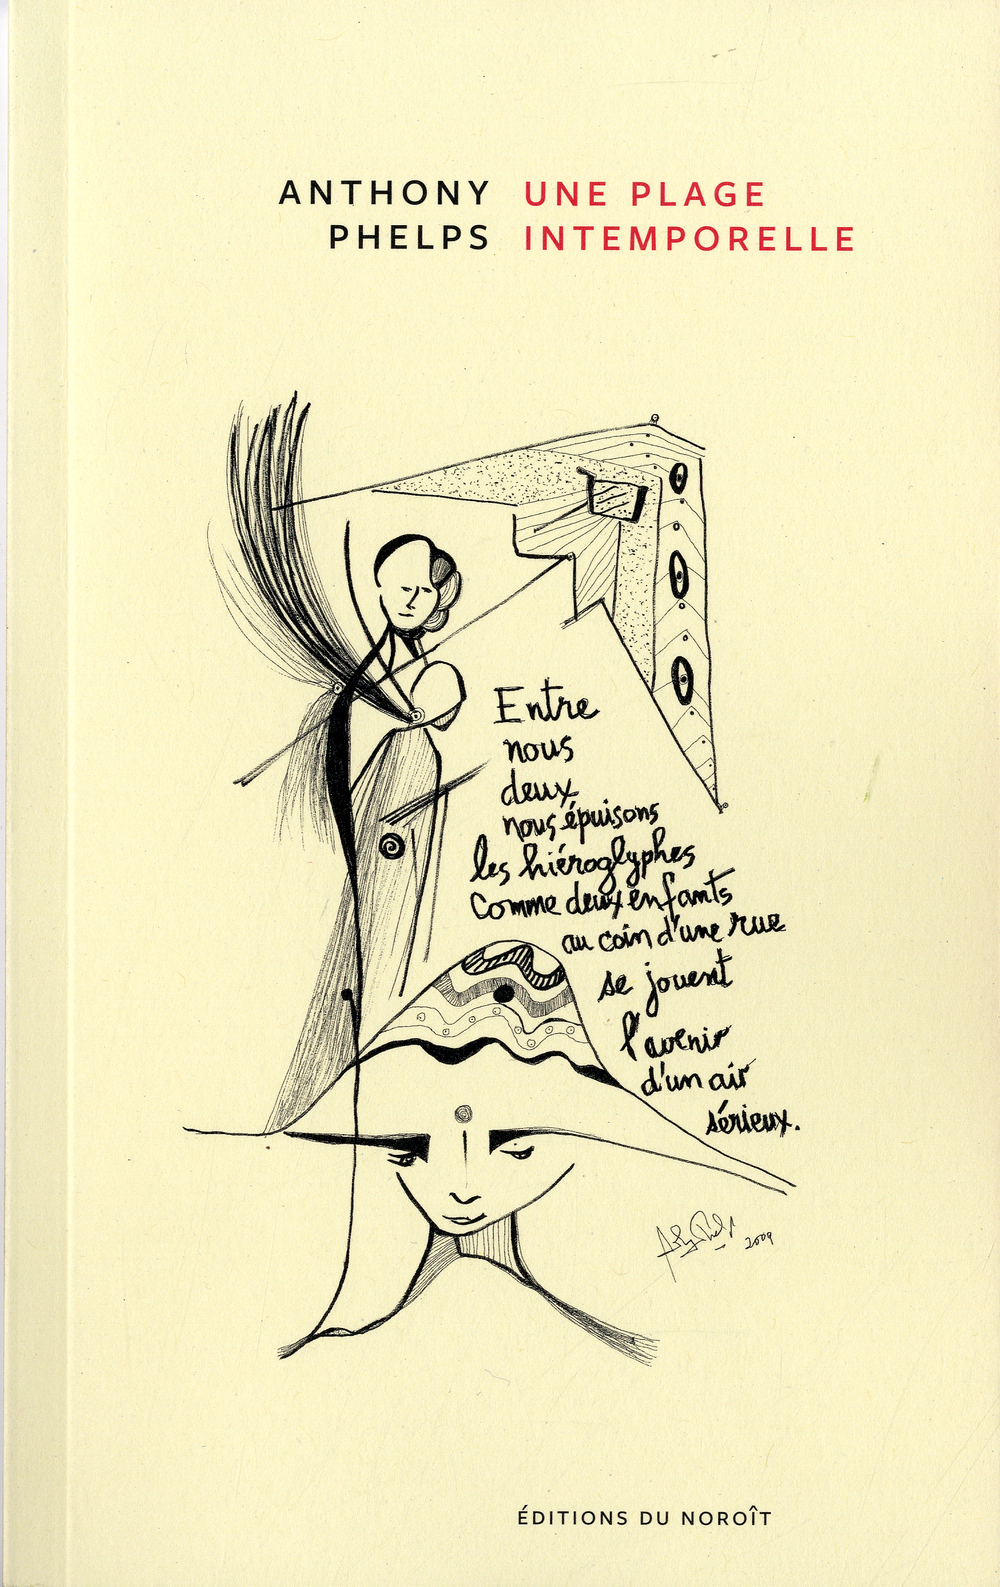 ANTHONY PHELPS
UNE PLAGE INTEMPORELLE
Entre
nous
deux
nous épuisons
les hiéroglyphes
comme deux enfants
au coin d'une rue
se jouent
l'avenir
d'un air
sérieux.
2009
ÉDITIONS DU NOROÎT